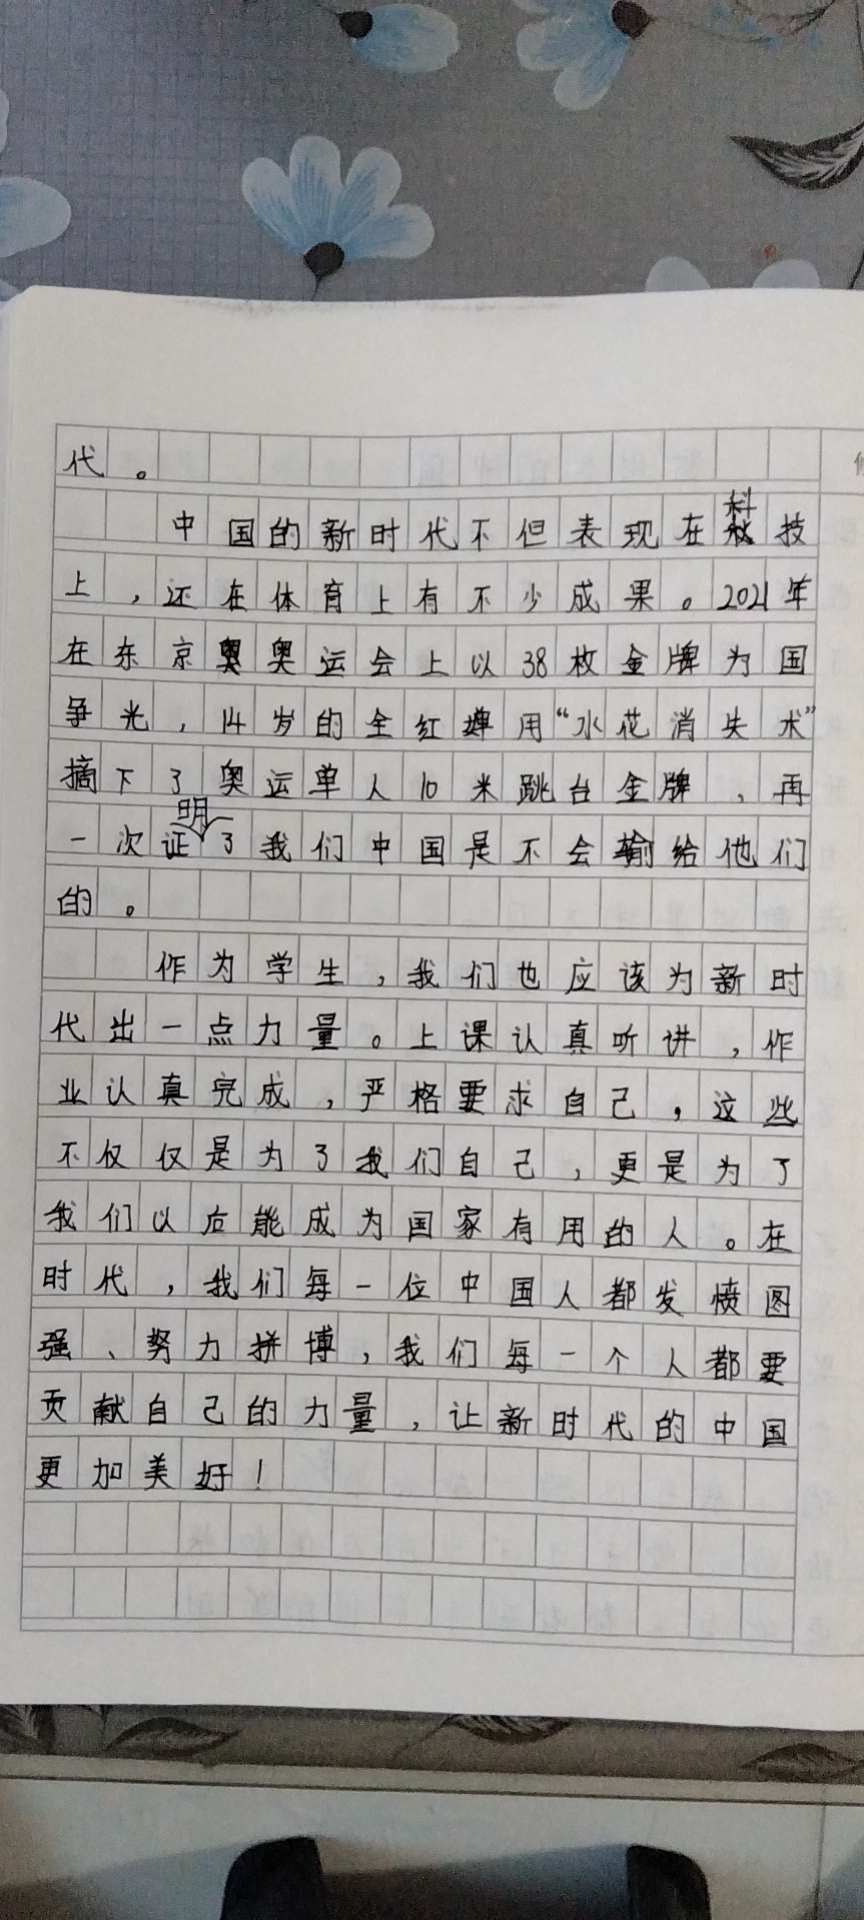 代。
中国的新时代不但表现在科技
上，还在体育上有不少成果。2021年
在东京奥奥运会上以38枚金牌为国
争光，14岁的全红婵用“水花消失术”
摘下了奥运单人10米跳台金牌，再
一次证明了我们中国是不会输给他们
的。
作为学生，我们也应该为新时
代出一点力量。上课认真听讲，作
业认真完成，严格要求自己，这些
不仅仅是为了我们自己，更是为了
我们以后能成为国家有用的人。在
时代，我们每一位中国人都发愤图
强、努力拼博，我们每一个人都要
贡献自己的力量，让新时代的中国
更加美好！